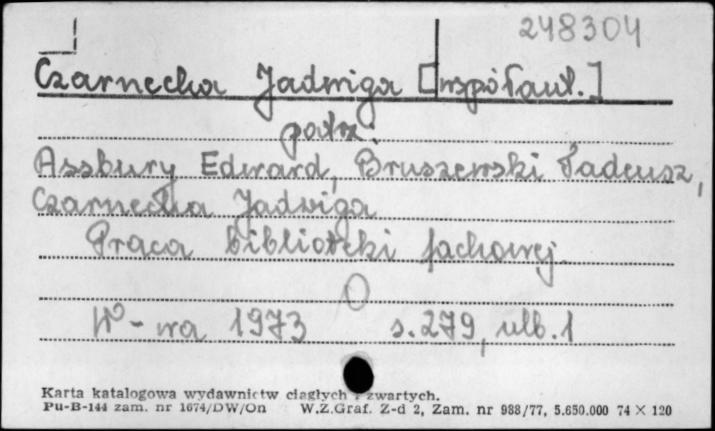 248304
Czarnecka Jadwiga [współaut.]
patrz:
Assbury Edward, Bruszewski Tadeusz,
Czarnecka Jadwiga
Praca biblioteki fachowej.
W-wa 1973 s. 279, nlb. 1
Karta katalogowa wydawnictw ciągłych i zwartych.
Pu-B-144 zam. nr 1674/DW/On W.Z.Graf. Z-d 2, Zam. nr 988/77, 5.650.000 74 × 120